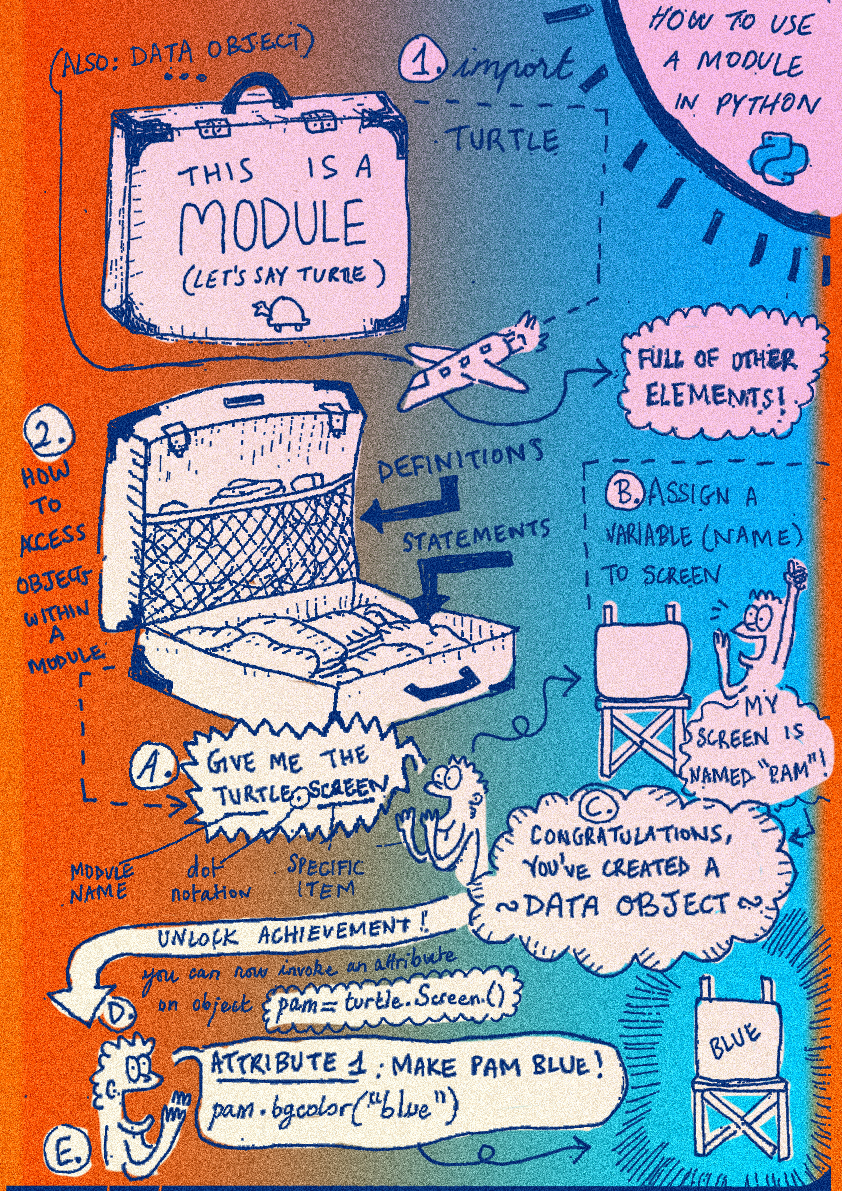 HOW TO USE
A MODULE
IN PYTHON
(ALSO: DATA OBJECT)
...
1. import
TURTLE
THIS IS A
MODULE
(LET'S SAY TURTLE)
FULL OF OTHER
ELEMENTS!
2.
HOW
TO
ACCESS
OBJECTS
WITHIN
A
MODULE
DEFINITIONS
STATEMENTS
A.
GIVE ME THE
TURTLE.SCREEN
MODULE
NAME
dot
notation
SPECIFIC
ITEM
B. ASSIGN A
VARIABLE (NAME)
TO SCREEN
MY
SCREEN IS
NAMED "PAM"!
C.
CONGRATULATIONS,
YOU'VE CREATED A
~DATA OBJECT~
UNLOCK ACHIEVEMENT!
you can now invoke an attribute
on object pam = turtle.Screen.()
D.
ATTRIBUTE 1: MAKE PAM BLUE!
pam.bgcolor("blue")
E.
BLUE